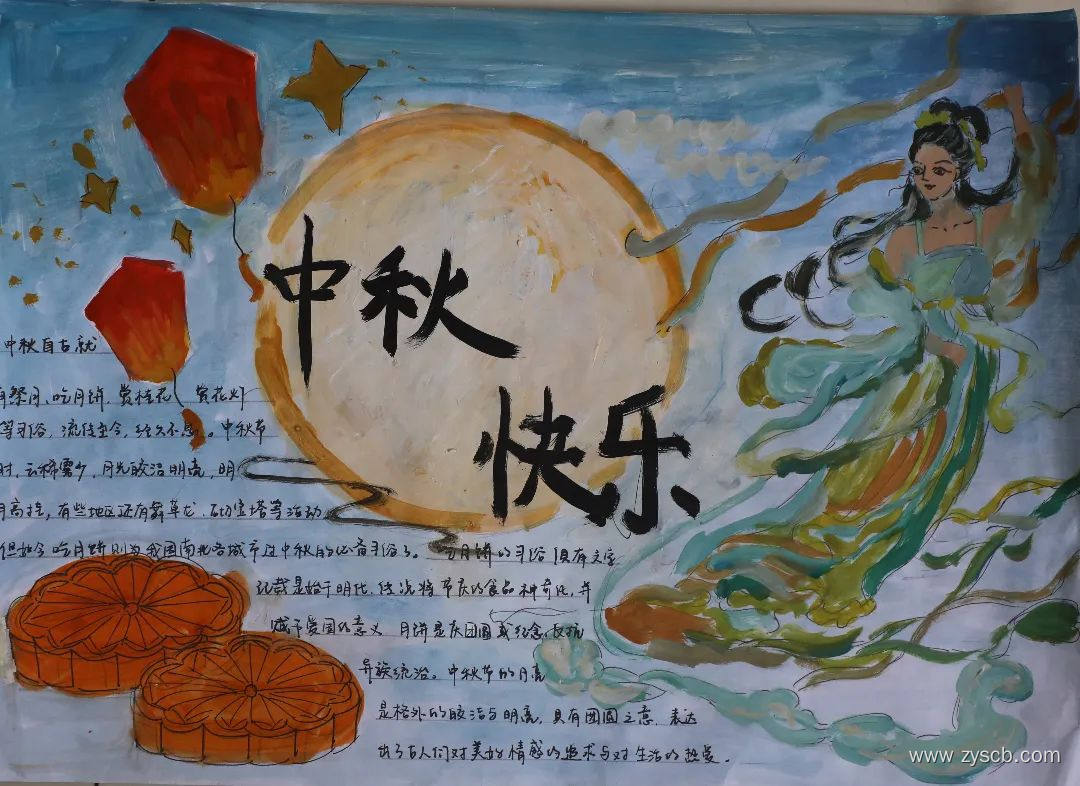 中秋
快乐
中秋自古就
有祭月、吃月饼、赏桂花、赏花灯
等习俗，流传至今，经久不息。中秋节
时，云稀雾少，月光皎洁明亮，明
月高挂，有些地区还有舞草龙、砌宝塔等活动
但如今吃月饼则为我国南北各城市过中秋的必首习俗了。月饼的习俗 俱有文字
记载是始于明代，
赋予爱国的意义 月饼是庆团圆或纪念反抗
异族统治。中秋节的月亮
是格外的皎洁与明亮，具有团圆之意，表达
出了古人们对美好情感的追求与对生活的热爱。
www.zyscb.com